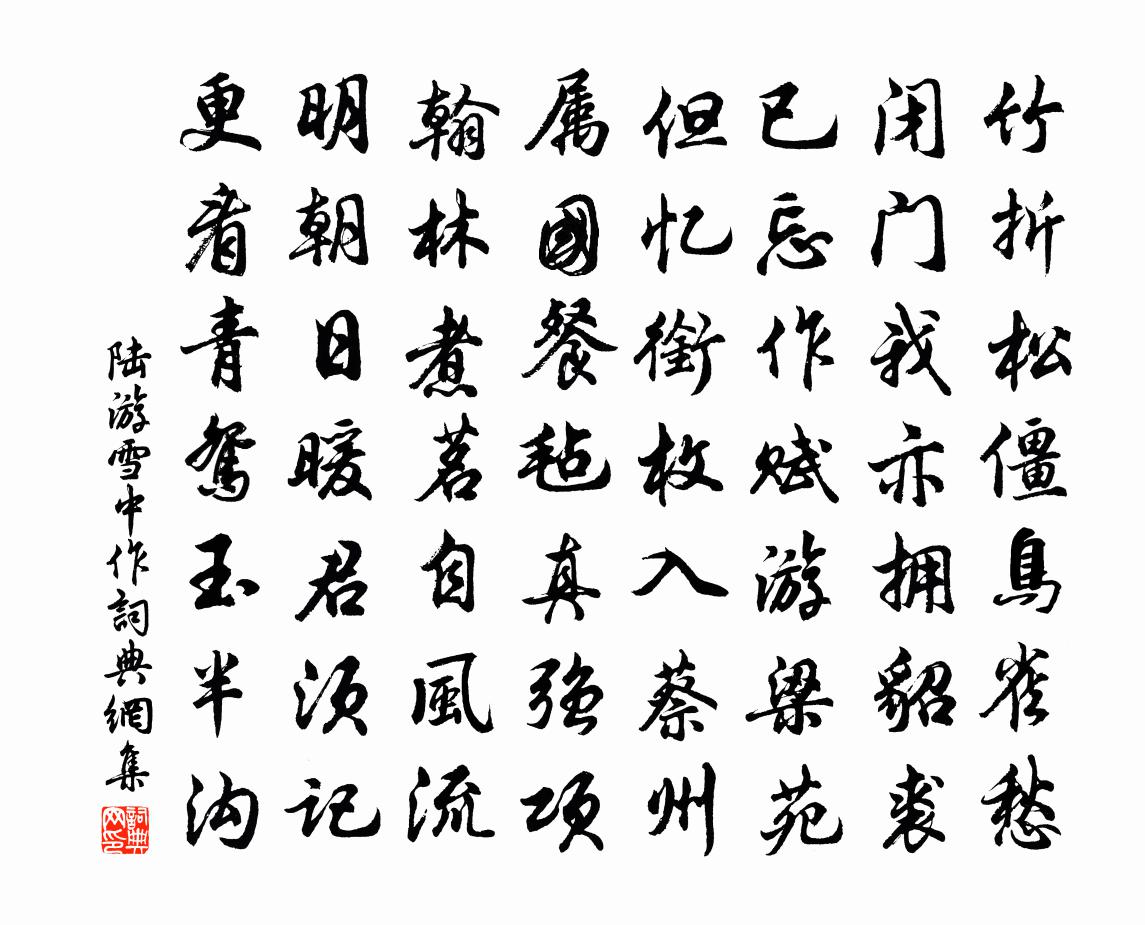 竹折松僵鳥雀愁
闭门我亦拥貂裘
已忘作赋游梁苑
但忆銜枚入蔡州
属國餐毡真强项
翰林煮茗自風流
明朝日暖君须记
更看青鸳玉半沟
陆游雪中作詞典網集
詞典网印